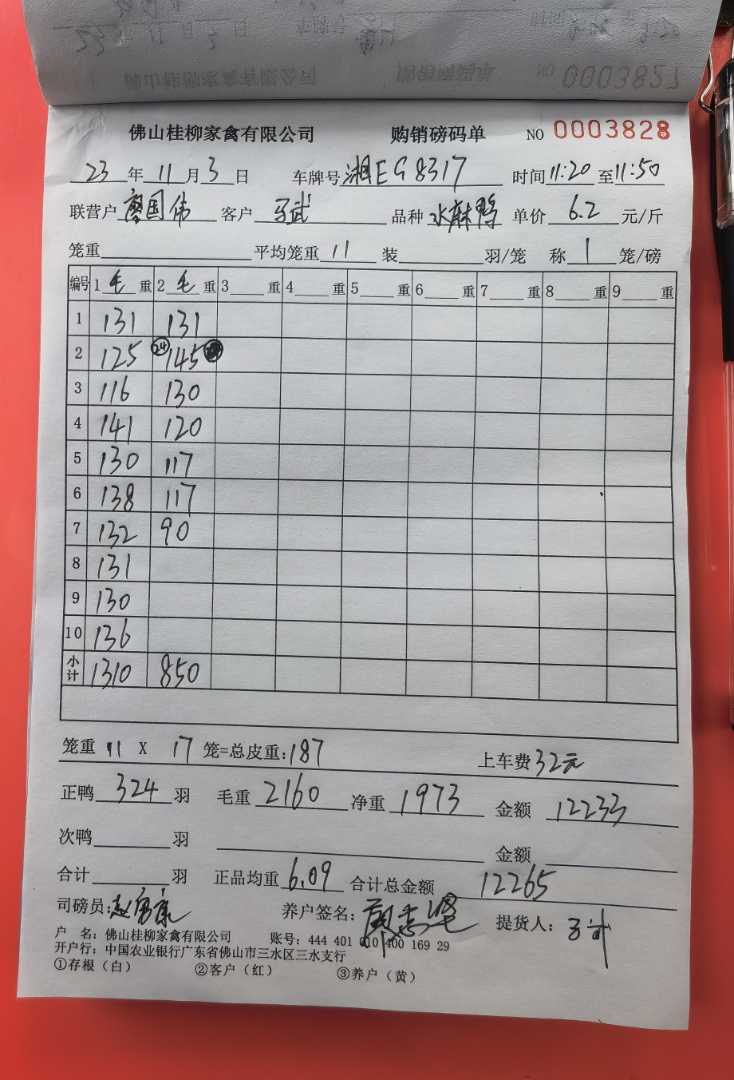 佛山桂柳家禽有限公司 购销磅码单 NO 0003827
佛山桂柳家禽有限公司 购销磅码单 NO 0003828
23 年 11 月 3 日 车牌号 湘E G8317 时间 11:20 至 11:50
联营户 廖国伟 客户 武 品种 水麻鸭 单价 6.2 元/斤
笼重 平均笼重 11 装 羽/笼 称 1 笼/磅
编号 1 毛 重 2 毛 重 3 重 4 重 5 重 6 重 7 重 8 重 9 重
1 131 131
2 125 24 145
3 116 130
4 141 120
5 130 117
6 138 117
7 132 90
8 131
9 130
10 136
小计 1310 850
笼重 11 X 17 笼=总皮重:187 上车费 32元
正鸭 324 羽 毛重 2160 净重 1973 金额 12233
次鸭 羽 金额
合计 羽 正品均重 6.09 合计总金额 12265
司磅员: 养户签名: 提货人:
户 名:佛山桂柳家禽有限公司 账号:444 401 010 400 169 29
开户行:中国农业银行广东省佛山市三水区三水支行
①存根(白) ②客户(红) ③养户(黄)